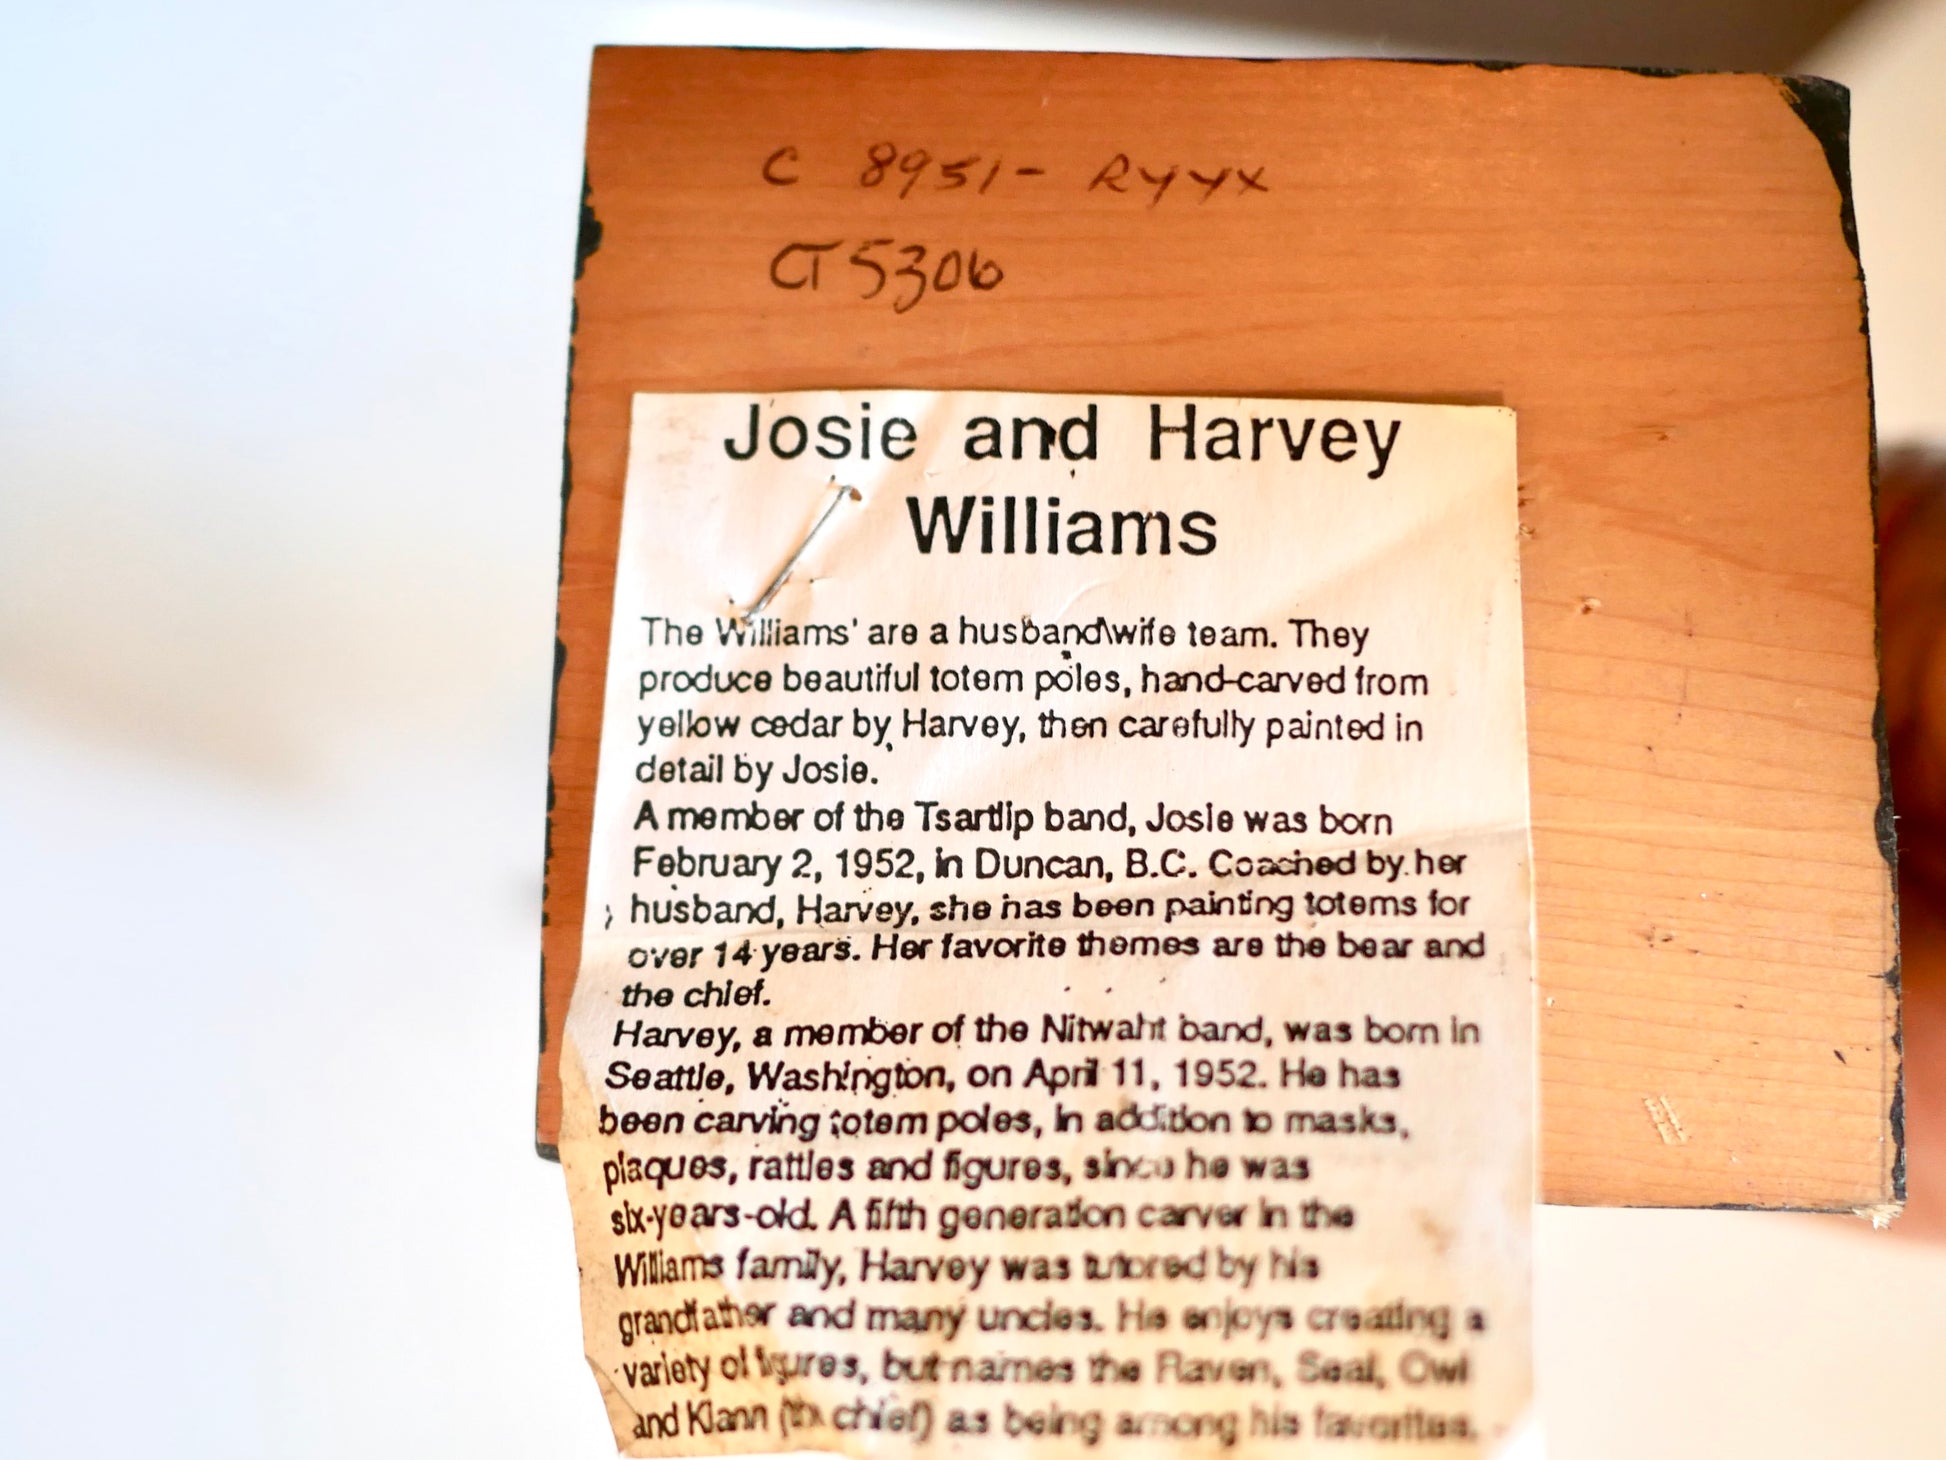 C 8951- RYYX
CT 5306
Josie and Harvey
Williams
The Williams' are a husband\wife team. They
produce beautiful totem poles, hand-carved from
yellow cedar by Harvey, then carefully painted in
detail by Josie.
A member of the Tsartlip band, Josie was born
February 2, 1952, in Duncan, B.C. Coached by her
husband, Harvey, she has been painting totems for
over 14 years. Her favorite themes are the bear and
the chief.
Harvey, a member of the Nitwaht band, was born in
Seattle, Washington, on April 11, 1952. He has
been carving totem poles, in addition to masks,
plaques, rattles and figures, since he was
six-years-old. A fifth generation carver in the
Williams family, Harvey was tutored by his
grandfather and many uncles. He enjoys creating a
variety of figures, but names the Raven, Seal, Owl
and Klann (the chief) as being among his favorites.